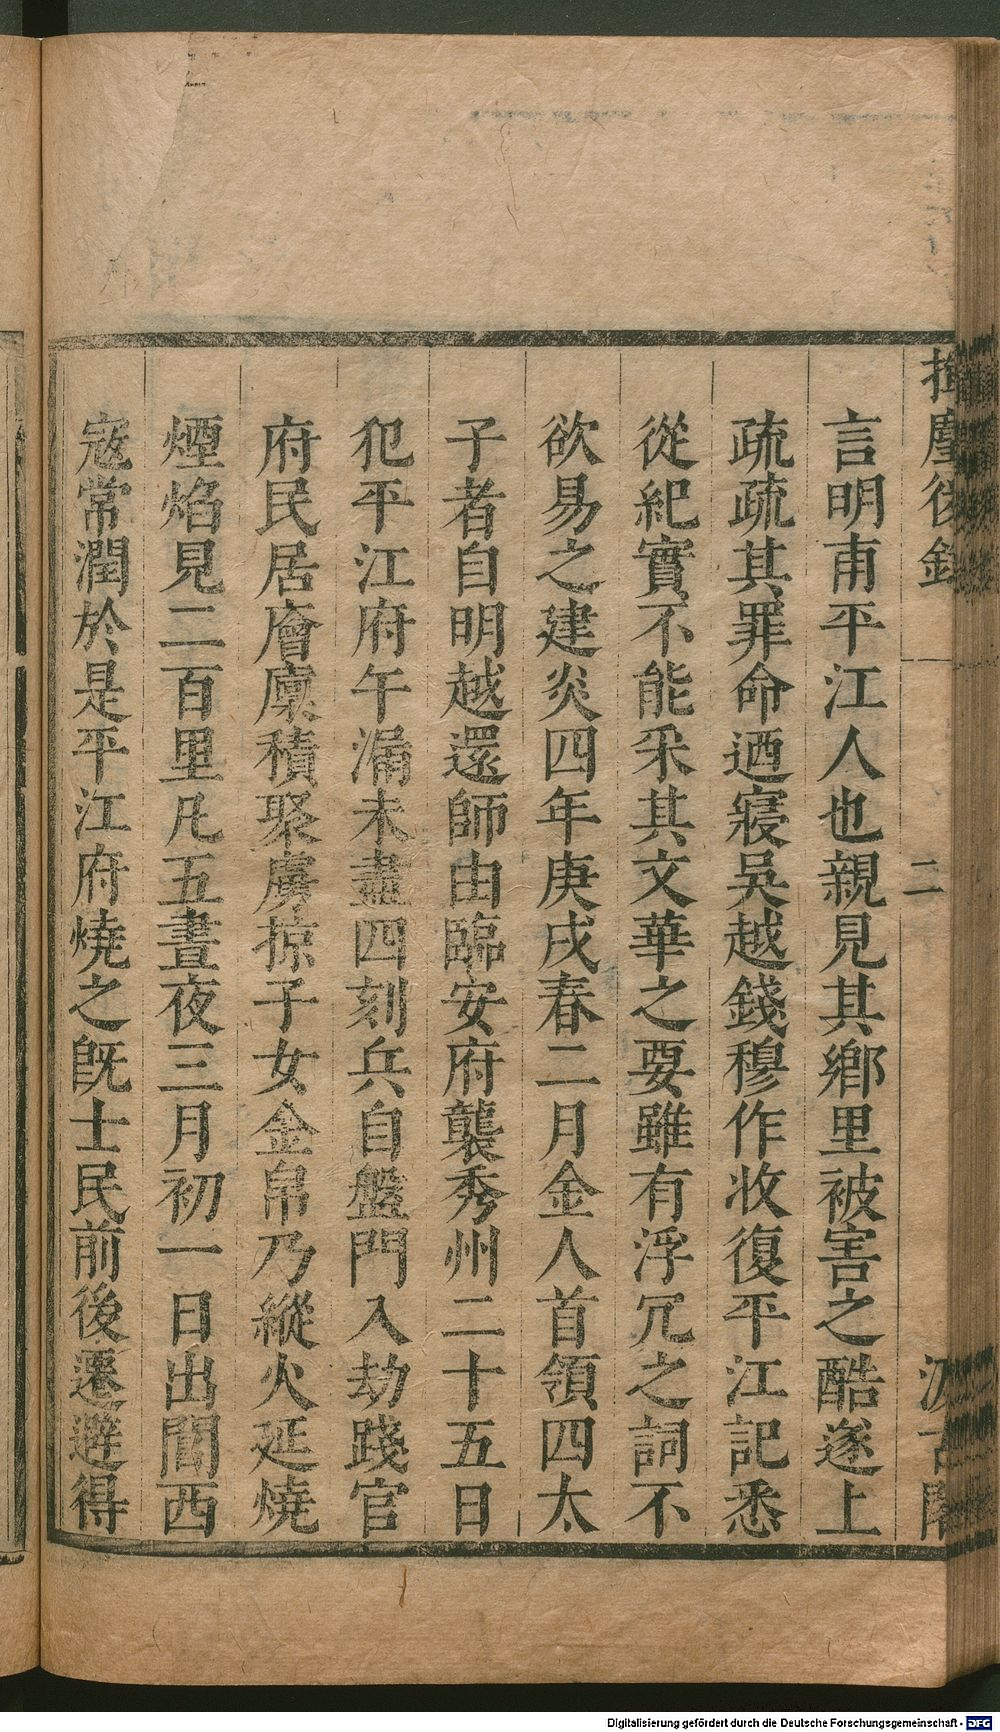 揮麈後錄
二
汲古閣
言明甫平江人也親見其鄉里被害之酷遂上
疏疏其罪命迺寢吳越錢穆作收復平江記悉
從紀實不能采其文華之要雖有浮冗之詞不
欲易之建炎四年庚戌春二月金人首領四太
子者自明越還師由臨安府襲秀州二十五日
犯平江府午漏未盡四刻兵自盤門入劫踐官
府民居廥廩積聚虜掠子女金帛乃縱火延燒
煙焰見二百里凡五晝夜三月初一日出閶西
寇常潤於是平江府燒之旣士民前後遷避得
Digitalisierung gefördert durch die Deutsche Forschungsgemeinschaft - DFG